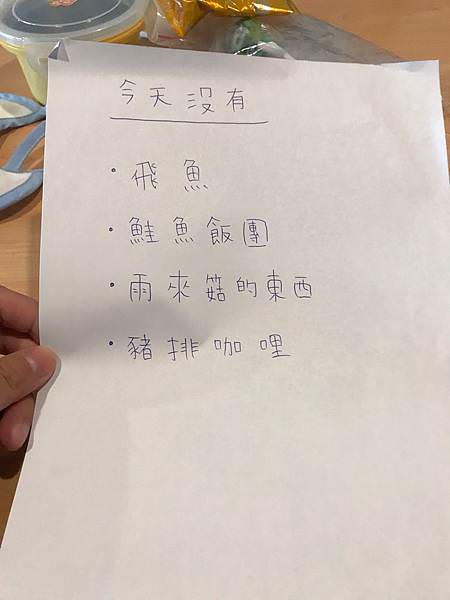 今天沒有
・飛魚
・鮭魚飯團
・雨來菇的東西
・豬排咖哩